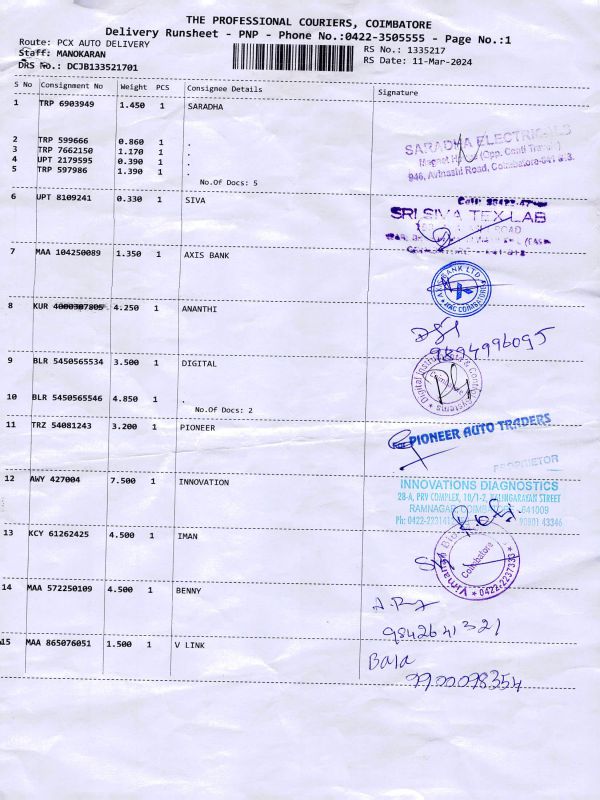 THE PROFESSIONAL COURIERS, COIMBATORE
Delivery Runsheet - PNP - Phone No.:0422-3505555 - Page No.:1
Route: PCX AUTO DELIVERY
RS No.: 1335217
Staff: MANOKARAN
RS Date: 11-Mar-2024
DRS No.: DCJB133521701
S No Consignment No Weight PCS Consignee Details Signature
1 TRP 6903949 1.450 1 SARADHA
2 TRP 599666 0.860 1 .
3 TRP 7662150 1.170 1 .
4 UPT 2179595 0.390 1 .
5 TRP 597986 1.390 1 .
No.Of Docs: 5
SARADHA ELECTRICALS
(Opp. Conti Travels)
946, Avinashi Road, Coimbatore-641
6 UPT 8109241 0.330 1 SIVA
SRI SIVA TEX LAB
ROAD
7 MAA 104250089 1.350 1 AXIS BANK
BANK LTD
COIMBATORE
8 KUR 4000307805 4.250 1 ANANTHI
9894996095
9 BLR 5450565534 3.500 1 DIGITAL
Digital
& Control Systems
Coimbatore
10 BLR 5450565546 4.850 1 .
No.Of Docs: 2
11 TRZ 54081243 3.200 1 PIONEER
For PIONEER AUTO TRADERS
PROPRIETOR
12 AWY 427004 7.500 1 INNOVATION
INNOVATIONS DIAGNOSTICS
28-A, PRV COMPLEX, 10/1-2, KALINGARAYAN STREET
RAMNAGAR, COIMBATORE - 641009
Ph: 0422-223141 90801 43346
13 KCY 61262425 4.500 1 IMAN
Coimbatore
0422-2237330
14 MAA 572250109 4.500 1 BENNY
9842641321
15 MAA 865076051 1.500 1 V LINK
Bala
9900098354